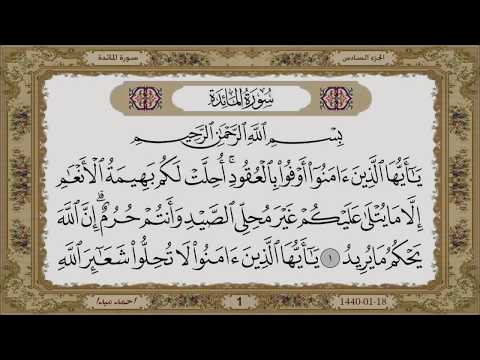 الجزء السادس
سورة المائدة
سُورَةُ المَائِدَةِ
بِسْمِ اللَّهِ الرَّحْمَٰنِ الرَّحِيمِ
يَٰٓأَيُّهَا ٱلَّذِينَ ءَامَنُوٓا۟ أَوْفُوا۟ بِٱلْعُقُودِ ۚ أُحِلَّتْ لَكُم بَهِيمَةُ ٱلْأَنْعَٰمِ
إِلَّا مَا يُتْلَىٰ عَلَيْكُمْ غَيْرَ مُحِلِّى ٱلصَّيْدِ وَأَنتُمْ حُرُمٌ ۗ إِنَّ ٱللَّهَ
يَحْكُمُ مَا يُرِيدُ ١ يَٰٓأَيُّهَا ٱلَّذِينَ ءَامَنُوا۟ لَا تُحِلُّوا۟ شَعَٰٓئِرَ ٱللَّهِ
1440-01-18
1